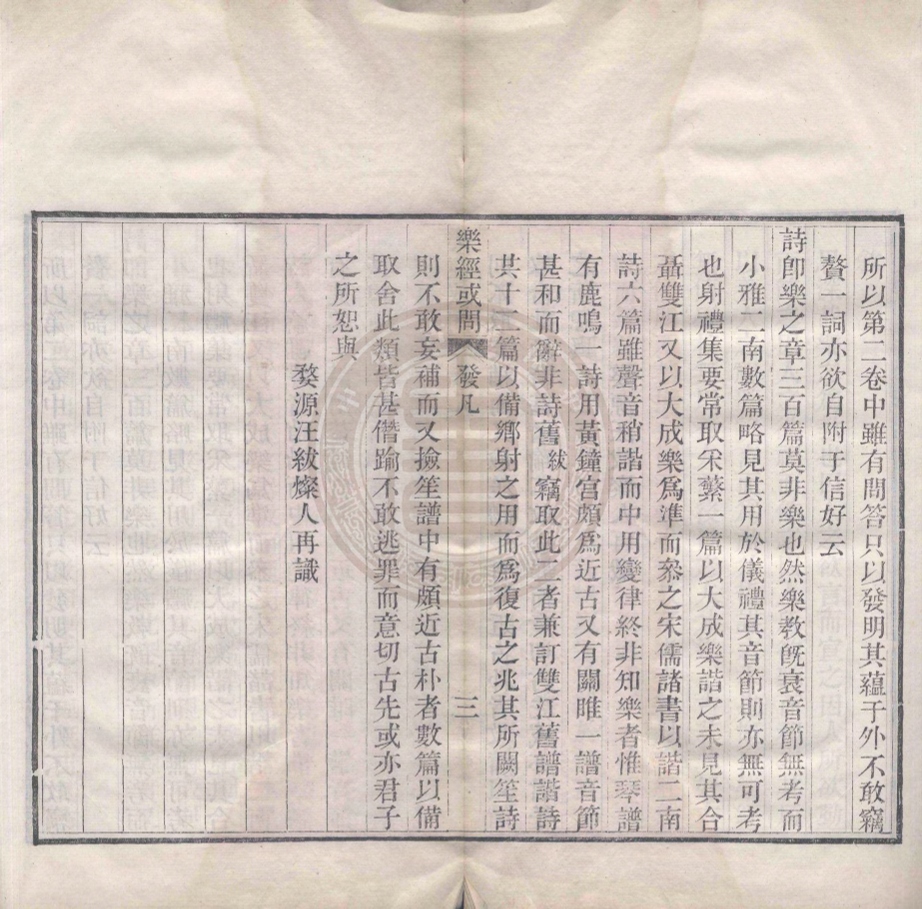 所以第二卷中雖有問答只以發明其蘊于外不敢竊
贅一詞亦欲自附于信好云
詩卽樂之章三百篇莫非樂也然樂教旣衰音節無考而
小雅二南數篇略見其用於儀禮其音節則亦無可考
也射禮集要常取采蘩一篇以大成樂諧之未見其合
聶雙江又以大成樂爲準而叅之宋儒諸書以諧二南
詩六篇雖聲音稍諧而中用變律終非知樂者惟琴譜
有鹿鳴一詩用黃鐘宮頗爲近古又有關雎一譜音節
甚和而辭非詩舊紱竊取此二者兼訂雙江舊譜諧詩
共十三篇以備鄉射之用而爲復古之兆其所闕笙詩
樂經或問 發凡 三
則不敢妄補而又撿笙譜中有頗近古朴者數篇以備
取舍此類皆甚僭踰不敢逃罪而意切古先或亦君子
之所恕與
婺源汪紱燦人再識